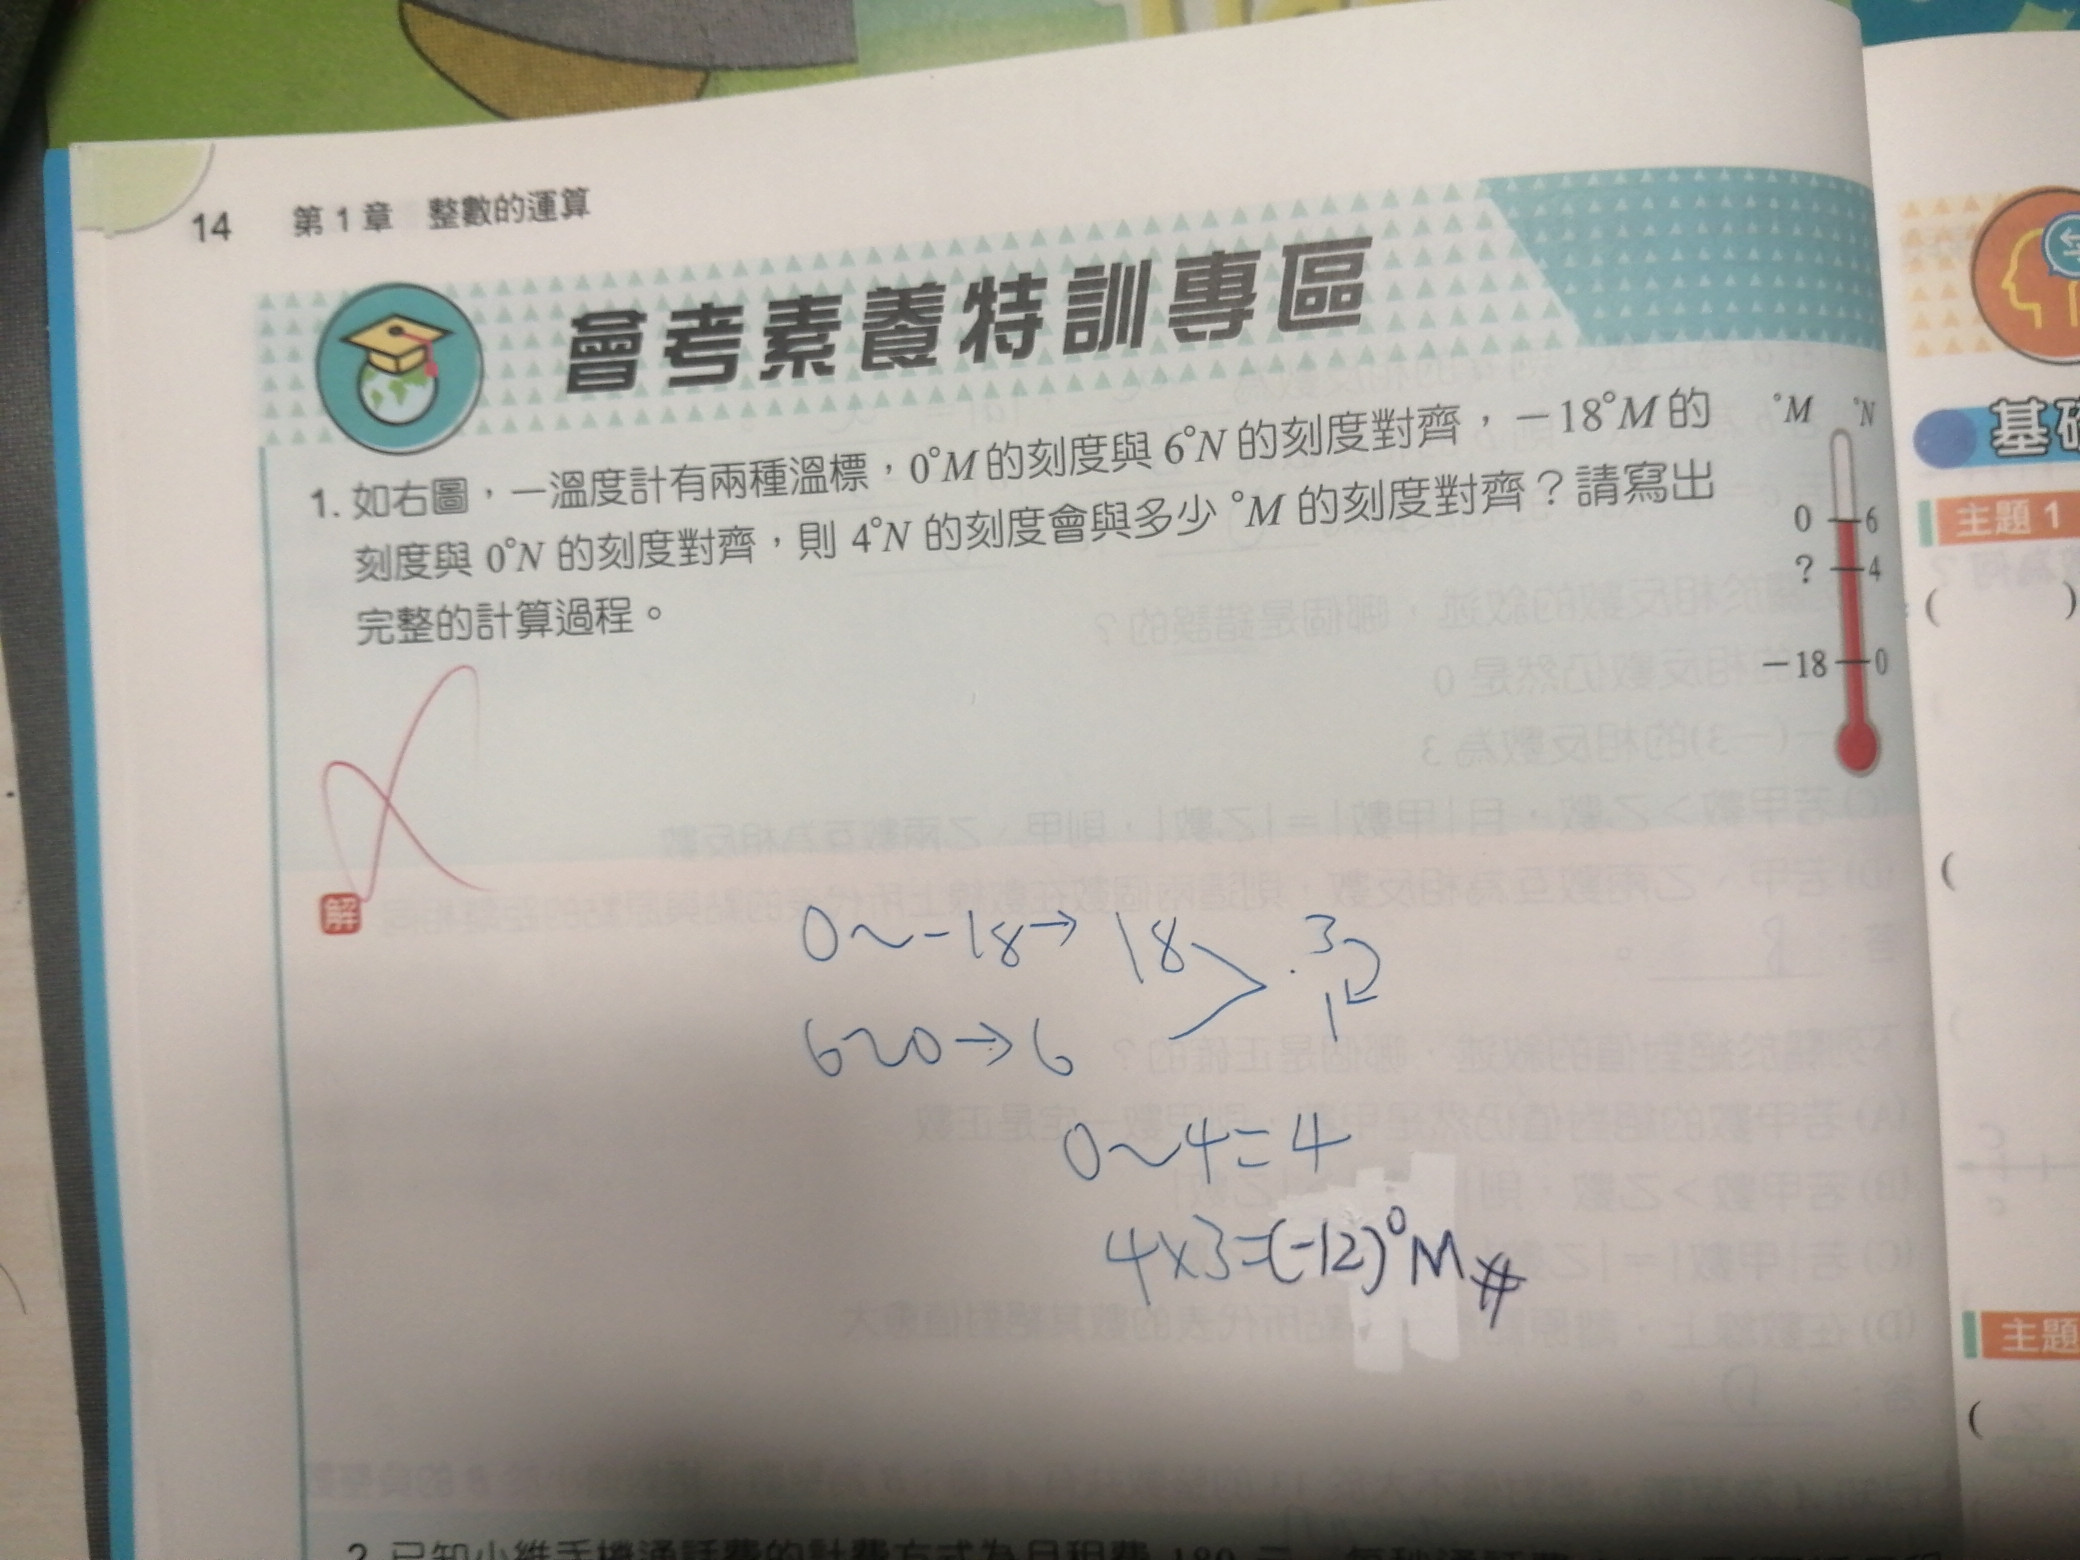 14 第1章 整數的運算
會考素養特訓專區
1. 如右圖，一溫度計有兩種溫標，0°M的刻度與6°N的刻度對齊，－18°M的
刻度與0°N的刻度對齊，則4°N的刻度會與多少°M的刻度對齊？請寫出
完整的計算過程。
°M °N
0 6
? 4
－18 0
解
0～-18→18 3
6～0→6 1
0～4=4
4×3=(-12)°M#
2. 已知小維手機通話費的計費方式為月租費180元
基
主題1
( )
(
主題
(